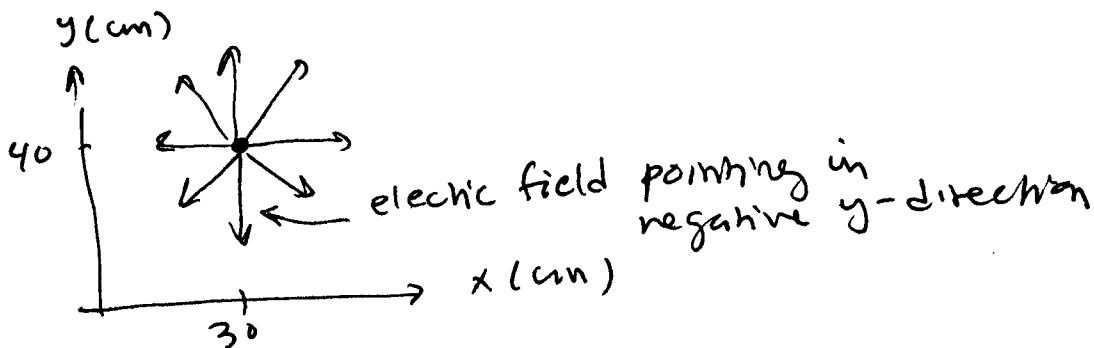 y (cm)
40
electric field pointing in
negative y-direction
x (cm)
30